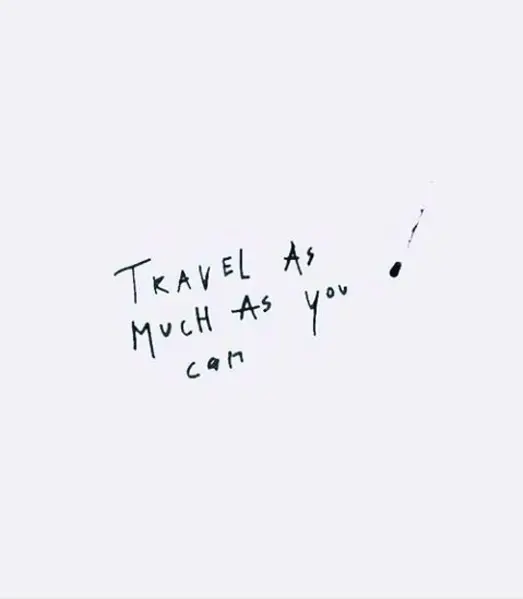 TRAVEL AS
MUCH AS YOU
can